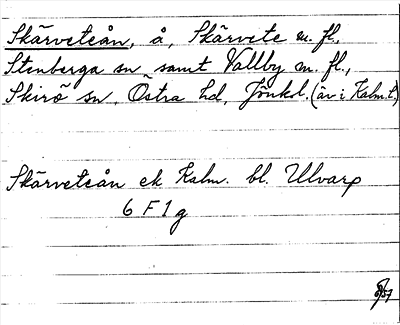 Skärveteån, å, Skärvete m. fl.,
Stenberga sn samt Vallby m. fl.,
Skirö sn, Östra hd, Jönkl. (äv. i Kalm. l.)
Skärveteån ek Kalm. bl. Ulvarp
6 F 1 g